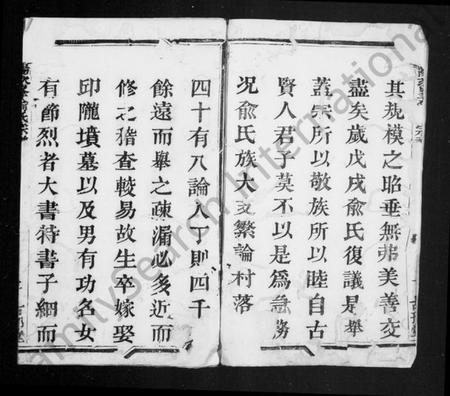 其規模之昭垂無弗美善交
盡矣歲戊戌俞氏復議是舉
蓋宗所以敬族所以睦自古
賢人君子莫不以是為急務
况俞氏族大支繁論村落
四十有八論人丁則四千
餘遠而舉之疎漏必多近而
修之稽查較易故生卒嫁娶
邱隴墳墓以及男有功名女
有節烈者大書特書子細而
FamilySearch International